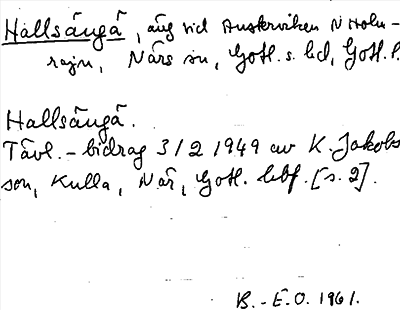 Hallsängä, äng vid Austerviken N Holm-
rajn, Närs sn, Gotl. s. hd, Gotl. l.
Hallsängä.
Tävl.-bidrag 3/2 1949 av K. Jakobs
son, Kulla, När, Gotl. lbf. [s. 2].
B.-E.O. 1961.